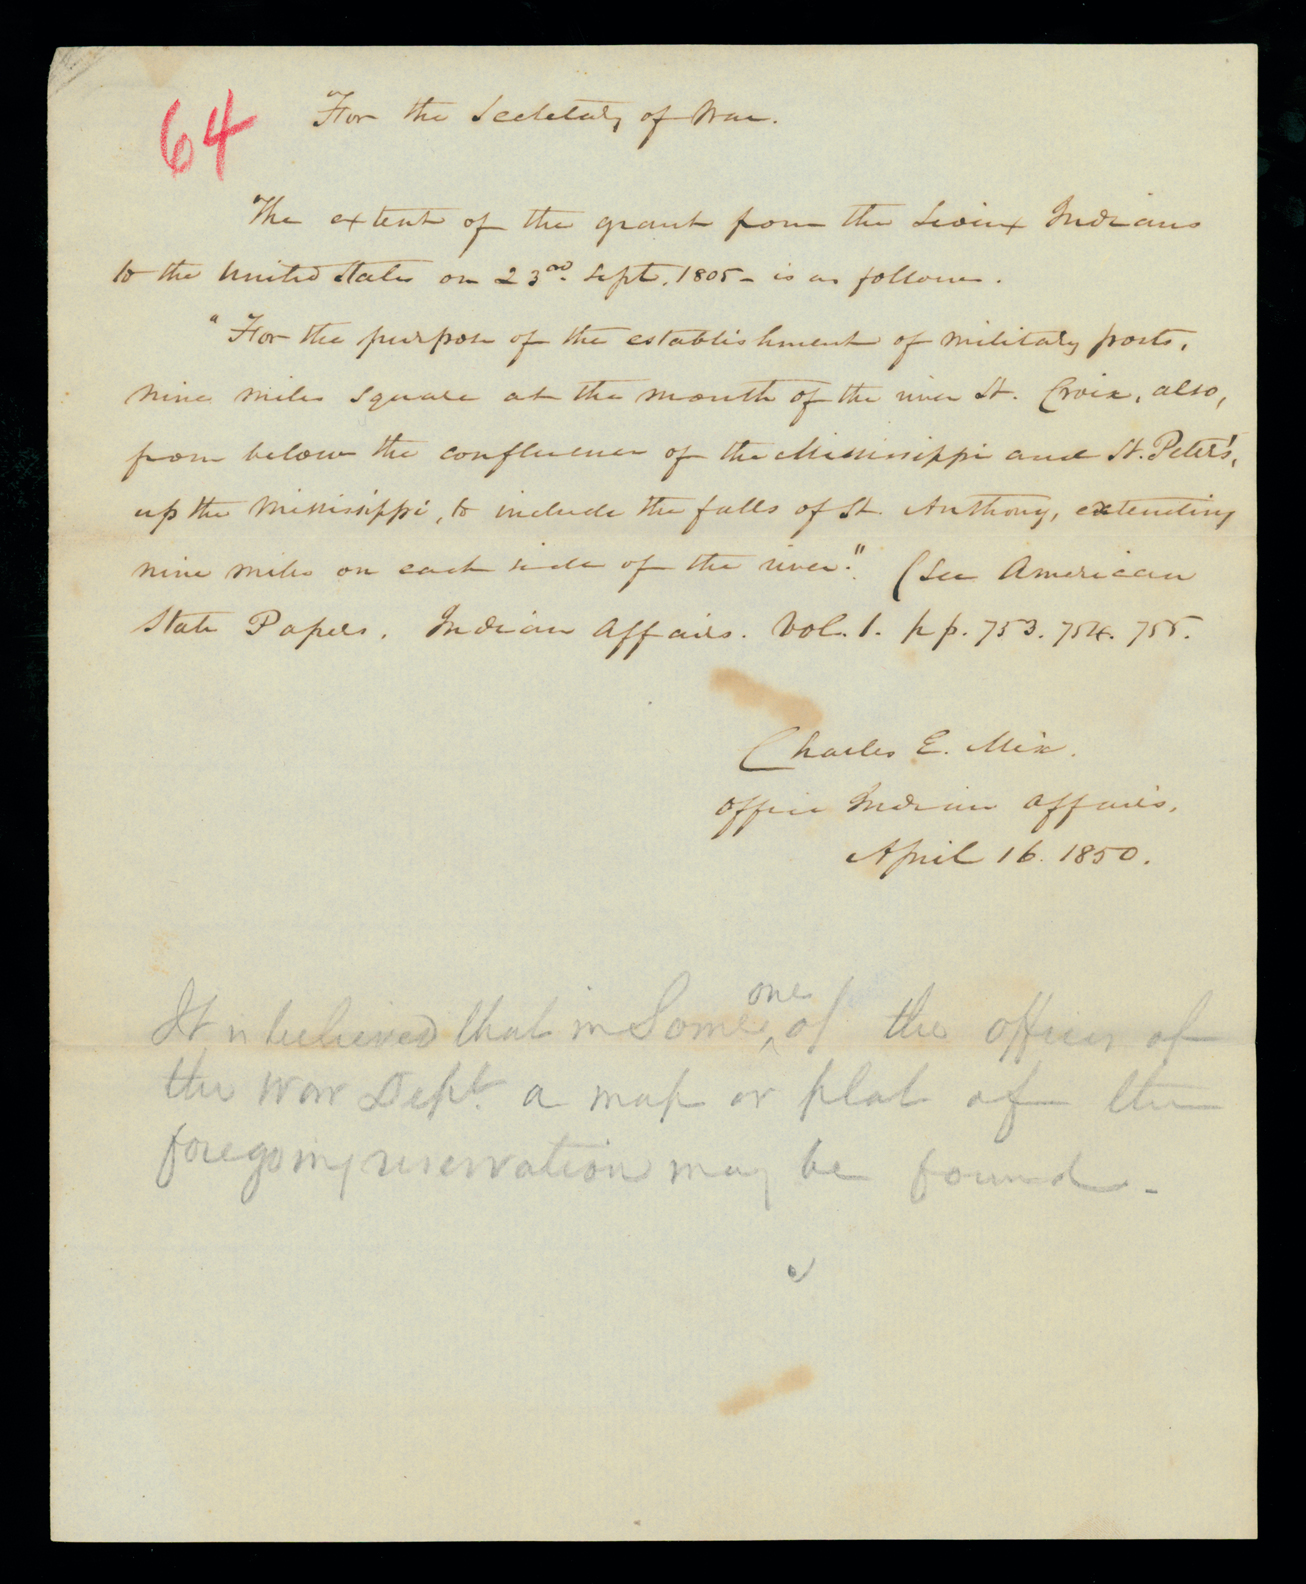 64
For the Secretary of War.
The extent of the grant from the Sioux Indians
to the United States on 23rd. Sept. 1805 - is as follows.
"For the purpose of the establishment of military posts,
nine miles square at the mouth of the river St. Croix, also,
from below the confluence of the Mississippi and St. Peter's,
up the Mississippi, to include the falls of St. Anthony, extending
nine miles on each side of the river." (See American
State Papers. Indian Affairs. Vol. 1. pp. 753. 754. 755.
Charles E. Mix.
Office Indian Affairs.
April 16. 1850.
one
It is believed that in Some ^ of the offices of
the War Dept. a map or plat of the
foregoing reservation may be found. -